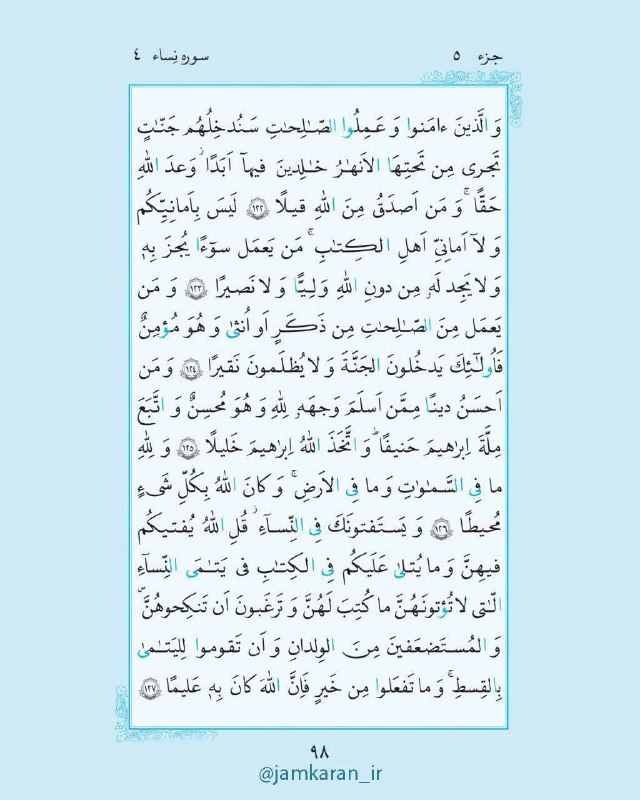 جزء ۵
سوره نساء ۴
وَ الَّذينَ ءامَنوا وَ عَمِلُوا الصّـٰلِحـٰتِ سَنُدخِلُهُم جَنّـٰتٍ
تَجرى مِن تَحتِهَا الاَنهـٰرُ خـٰلِدينَ فيهآ اَبَدًا ۖ وَعدَ اللهِ
حَقًّا ۚ وَ مَن اَصدَقُ مِنَ اللهِ قيلًا ﴿۱۲۲﴾ لَيسَ بِاَمانِيِّكُم
وَ لآ اَمانِىِّ اَهلِ الكِتـٰبِ ۗ مَن يَعمَل سوٓءًا يُجزَ بِهٖ
وَ لا يَجِد لَهٗ مِن دونِ اللهِ وَلِيًّا وَ لا نَصيرًا ﴿۱۲۳﴾ وَ مَن
يَعمَل مِنَ الصّـٰلِحـٰتِ مِن ذَكَرٍ اَو اُنثىٰ وَ هُوَ مُؤمِنٌ
فَاُولـٰٓئِكَ يَدخُلونَ الجَنَّةَ وَ لا يُظلَمونَ نَقيرًا ﴿۱۲۴﴾ وَ مَن
اَحسَنُ دينًا مِمَّن اَسلَمَ وَجهَهٗ لِلّٰهِ وَ هُوَ مُحسِنٌ وَ اتَّبَعَ
مِلَّةَ اِبرٰهيمَ حَنيفًا ۗ وَ اتَّخَذَ اللهُ اِبرٰهيمَ خَليلًا ﴿۱۲۵﴾ وَ لِلّٰهِ
ما فِى السَّمـٰوٰتِ وَ ما فِى الاَرضِ ۚ وَ كانَ اللهُ بِكُلِّ شَىءٍ
مُحيطًا ﴿۱۲۶﴾ وَ يَستَفتونَكَ فِى النِّسآءِ ۖ قُلِ اللهُ يُفتيكُم
فيهِنَّ وَ ما يُتلىٰ عَلَيكُم فِى الكِتـٰبِ فى يَتـٰمَى النِّسآءِ
الّـٰتى لا تُؤتونَهُنَّ ما كُتِبَ لَهُنَّ وَ تَرغَبونَ اَن تَنكِحوهُنَّ
وَ المُستَضعَفينَ مِنَ الوِلدانِ وَ اَن تَقوموا لِليَتـٰمىٰ
بِالقِسطِ ۚ وَ ما تَفعَلوا مِن خَيرٍ فَاِنَّ اللهَ كانَ بِهٖ عَليمًا ﴿۱۲۷﴾
۹۸
@jamkaran_ir